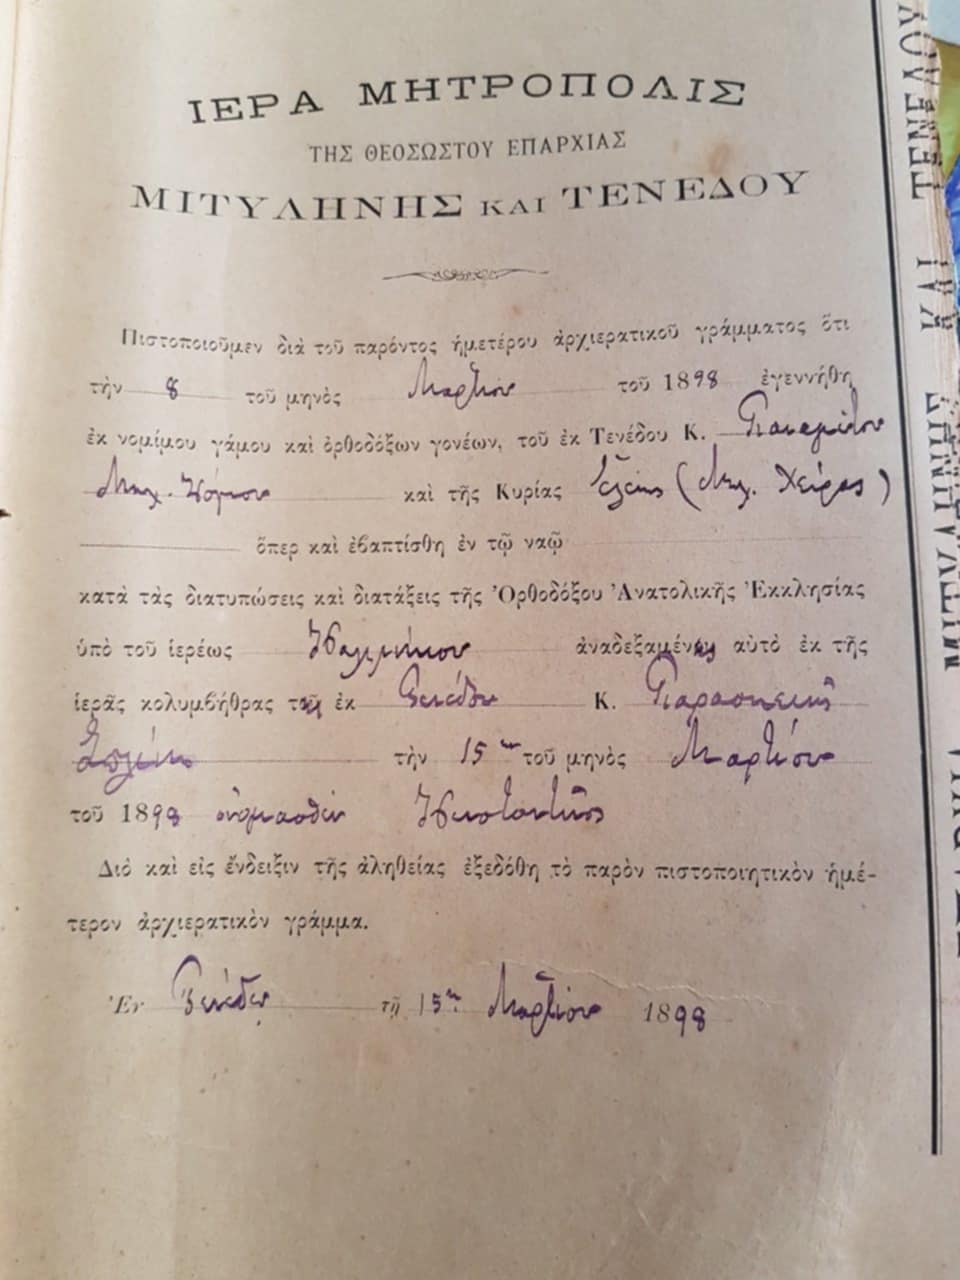 ΙΕΡΑ ΜΗΤΡΟΠΟΛΙΣ
ΤΗΣ ΘΕΟΣΩΣΤΟΥ ΕΠΑΡΧΙΑΣ
ΜΙΤΥΛΗΝΗΣ ΚΑΙ ΤΕΝΕΔΟΥ
Πιστοποιοῦμεν διὰ τοῦ παρόντος ἡμετέρου ἀρχιερατικοῦ γράμματος ὅτι
τὴν 8 τοῦ μηνὸς Μαρτίου τοῦ 1898 ἐγεννήθη
ἐκ νομίμου γάμου καὶ ὀρθοδόξων γονέων, τοῦ ἐκ Τενέδου Κ. Παναγιώτου
Μιχ. καὶ τῆς Κυρίας Ἑλένης (Μιχ. )
ὅπερ καὶ ἐβαπτίσθη ἐν τῷ ναῷ
κατὰ τὰς διατυπώσεις καὶ διατάξεις τῆς Ὀρθοδόξου Ἀνατολικῆς Ἐκκλησίας
ὑπὸ τοῦ ἱερέως Καλλινίκου ἀναδεξαμένης αὐτὸ ἐκ τῆς
ἱερᾶς κολυμβήθρας τῆς ἐκ Τενέδου Κ. Παρασκευῆς
τὴν 15ην τοῦ μηνὸς Μαρτίου
τοῦ 1898 ὀνομασθὲν Κωνσταντῖνος
Διὸ καὶ εἰς ἔνδειξιν τῆς ἀληθείας ἐξεδόθη τὸ παρὸν πιστοποιητικὸν ἡμέ-
τερον ἀρχιερατικὸν γράμμα.
Ἐν Τενέδῳ τῇ 15ῃ Μαρτίου 1898
ΚΑΙ ΤΕΝΕΔΟΥ